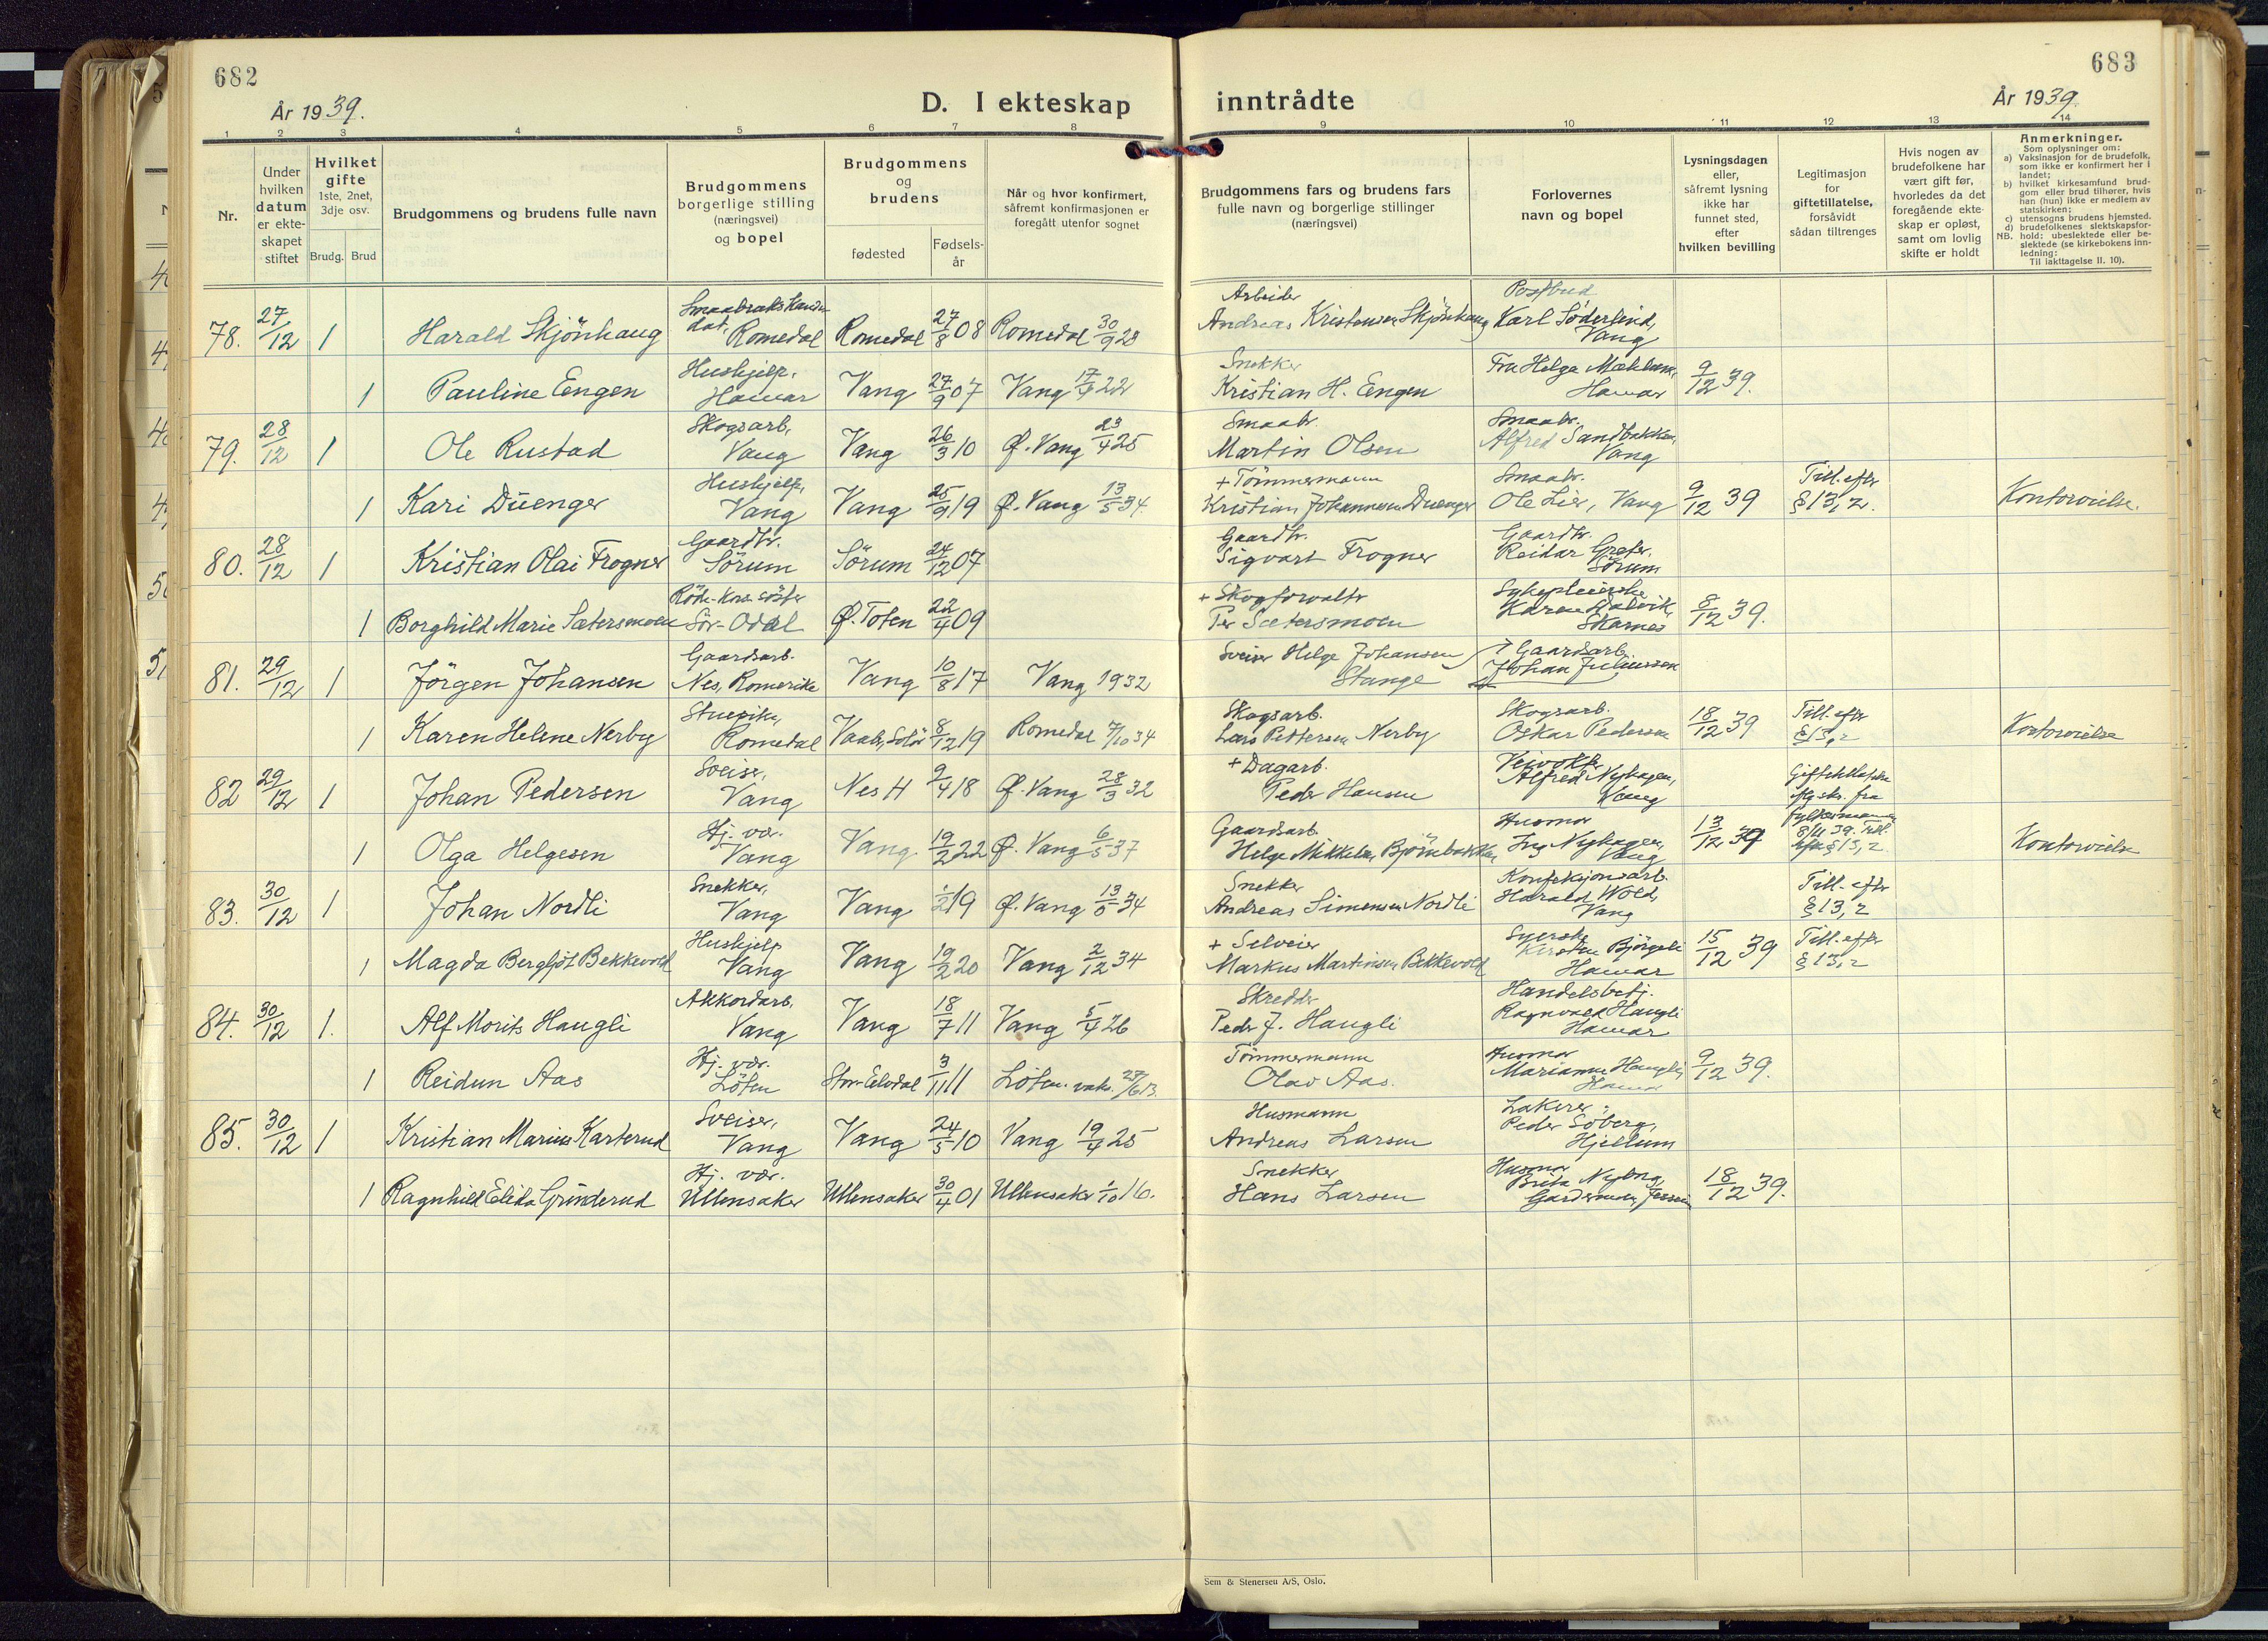 682
År 1939.
D. I ekteskap
inntrådte
683
År 1939.
1 2 3 4 5 6 7 8 9 10 11 12 13 14
Nr.
Under hvilken datum er ekteskapet stiftet
Hvilket gifte 1ste, 2net, 3dje osv.
Brudg. Brud
Brudgommens og brudens fulle navn
Brudgommens borgerlige stilling (næringsvei) og bopel
Brudgommens og brudens
fødested
Fødselsår
Når og hvor konfirmert, såfremt konfirmasjonen er foregått utenfor sognet
Brudgommens fars og brudens fars fulle navn og borgerlige stillinger (næringsvei)
Forlovernes navn og bopel
Lysningsdagen eller, såfremt lysning ikke har funnet sted, efter hvilken bevilling
Legitimasjon for giftetillatelse, forsåvidt sådan tiltrenges
Hvis nogen av brudefolkene har vært gift før, hvorledes da det foregående ekteskap er opløst, samt om lovlig skifte er holdt
Anmerkninger.
Som oplysninger om:
a) Vaksinasjon for de brudefolk, som ikke er konfirmert her i landet;
b) hvilket kirkesamfund brudgom eller brud tilhører, hvis han (hun) ikke er medlem av statskirken;
c) utensogns brudens hjemsted.
d) brudefolkenes slektskapsforhold: ubeslektede eller beslektede (se kirkebokens innledning:
NB.
Til iakttagelse II. 10).
78. 27/12 1 Harald Skjönhaug Romedal Romedal 27/8 08 Romedal 30/9 23 Arbeider Andreas Kristensen Skjönhaug Postbud Karl Söderlind, Vang
1 Pauline Engen Hushjelp, Hamar Vang 27/9 07 Vang 17/9 22 Snekker Kristian H. Engen Fru Helga Hamar 9/12 39.
79. 28/12 1 Ole Rustad Skogsarb, Vang Vang 26/3 10 Ø. Vang 23/4 25 Smaabr. Martin Olsen Smaabr. Alfred Sandbakken, Vang
1 Kari Düenger Hushjelp, Vang Vang 25/9 19 Ø. Vang 13/5 34. + Tömmermann Kristian Johannesen Duenger Smaabr. Ole Lier, Vang 9/12 39 Till. efter § 13, 2. Kontorvielse.
80. 28/12 1 Kristian Olai Frogner Gaardbr. Sörum Sörum 24/12 07 Gaardbr. Sigvart Frogner Gaardbr. Reidar Sörum
1 Borghild Marie Sætersmoen Röde-Kors söster Sör-Odal Ø. Toten 22/4 09 + Skogforvalter Per Sætersmoen Sykepleierske Karen Skarnes 8/12 39.
81. 29/12 1 Jörgen Johansen Gaardsarb. Nes, Romerike Vang 10/8 17 Vang 1932 Sveiser Helge Johansen Stange Gaardsarb. Johan Juliussen
1 Karen Helene Nerby Stuepike, Romedal Vaaler, Solör 8/12 19 Romedal 7/10 34 Skogsarb. Lars Pettersen Nerby Skogsarb. Oskar Pedersen 18/12 39 Till. efter § 13, 2 Kontorvielse
82 29/12 1 Johan Pedersen Sveiser, Vang Nes H 9/4 18 Ø. Vang 28/3 32 + Dagarb. Peder Hansen Veivokter Alfred Nyhagen, Vang Giftetillatelse fra
1 Olga Helgesen Hj. vær. Vang Vang 19/2 22 Ø. Vang 6/5 37 Gaardsarb. Helge Mikkelsen Björnbakken Husmor Nyhagen, Vang 13/12 39 fylkesmannen 8/11 39. Till. efter § 13, 2 Kontorvielse
83. 30/12 1 Johan Nordli Snekker, Vang Vang 1/2 19 Ø. Vang 13/5 34 Snekker Andreas Simensen Nordli Konfeksjonsarb. Harald Wold, Vang Till. efter § 13, 2
1 Magda Bergljot Bekkevold Hushjelp Vang Vang 19/2 20 Vang 2/12 34 + Selveier Markus Martinsen Bekkevold Syerske Kirsten Björgeli Hamar 15/12 39 Till. efter § 13, 2
84. 30/12 1. Alf Morits Haugli Akkordarb. Vang Vang 18/7 11 Vang 5/4 26 Skredder Peder J. Haugli Handelsbetj. Ragnvald Haugli Hamar
1 Reidun Aas Hj. vær. Löten Stor-Elvdal 3/11 11 Löten. vaks. Tömmermann Olav Aas. Husmor Marianne Haugli, Hamar 9/12 39.
85. 30/12 1 Kristian Marius Karterud Sveiser, Vang Vang 24/5 10 Vang 19/4 25 Husmann Andreas Larsen Lakerer Peder Söberg, Hjellum
1 Ragnhild Elida Gründerud Hj. vær. Ullensaker Ullensaker 30/4 01 Ullensaker 1/10 16. Snekker Hans Larsen Husmor 18/12 39.
Sem & Stenersen A/S, Oslo.